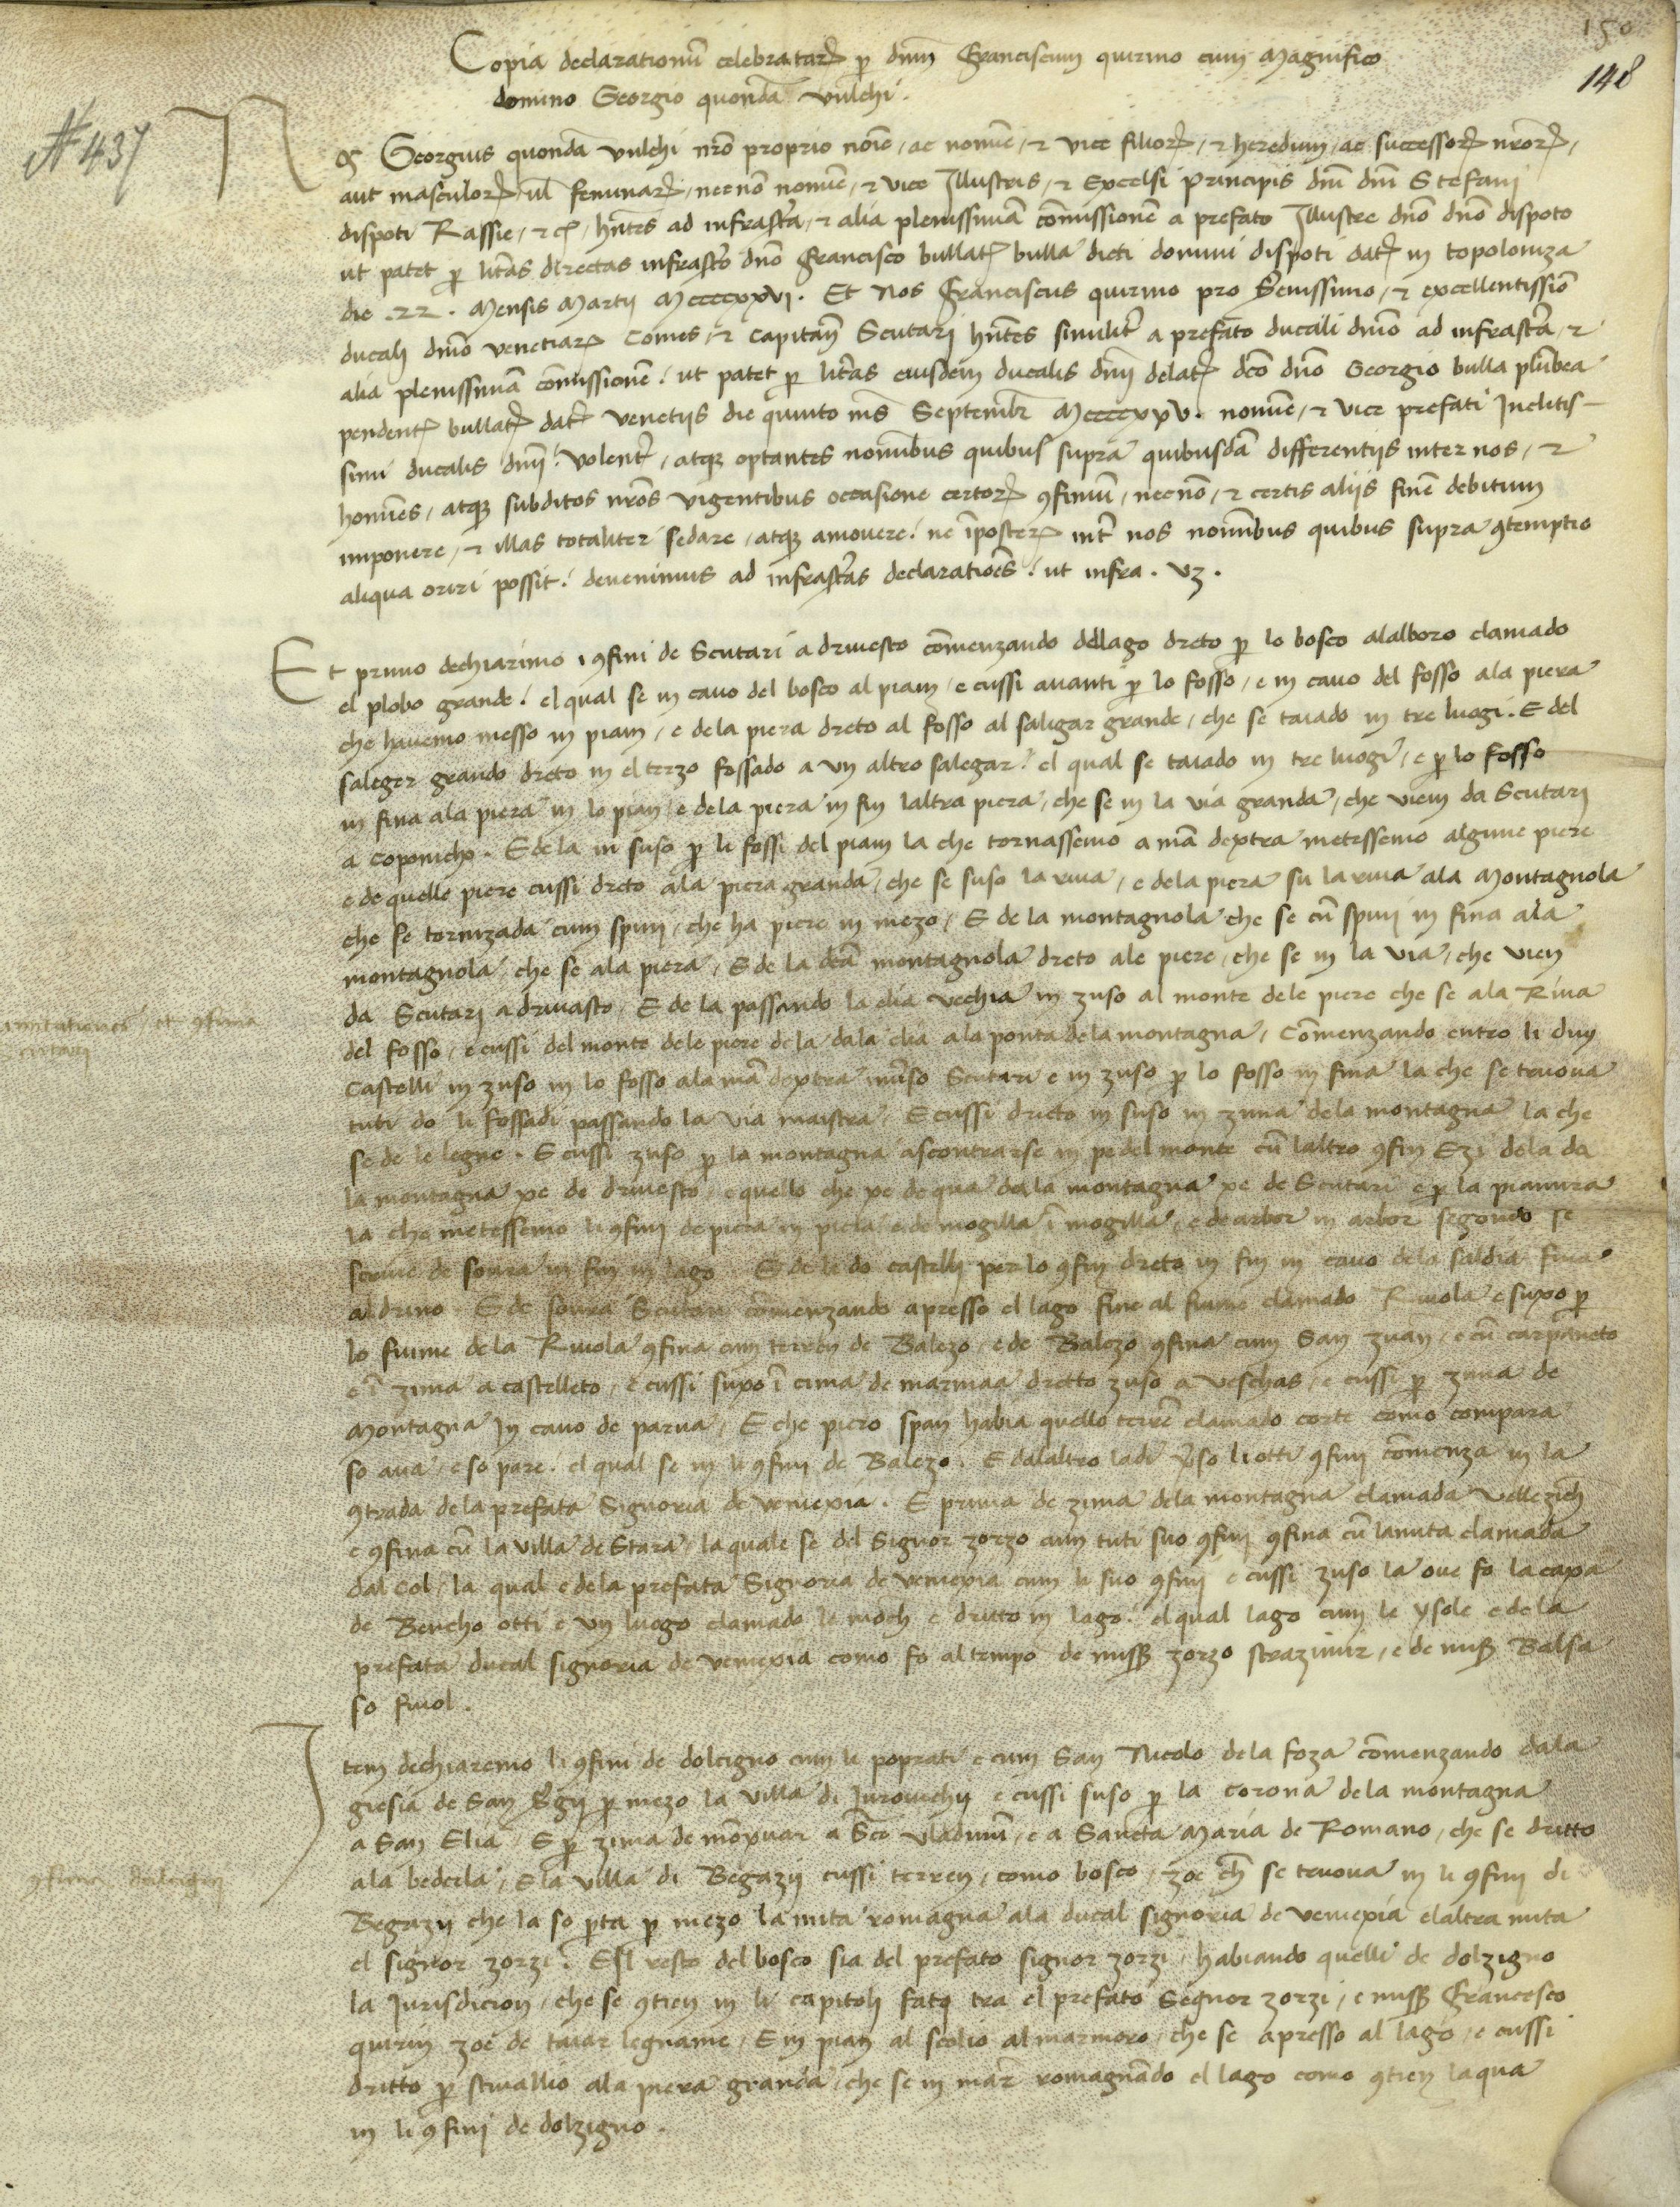 150
148
# 437
Copia declarationū celebratarꝝ ꝑ dnm̄ Franciscum quirino cum Magnifico
domino Georgio quondā vulchi.
Nos Georgius quondā vulchi nr̄o proprio noīe, ac nomine, ⁊ vice filiorꝝ, ⁊ heredum, ac successorꝝ nr̄orꝝ,
aut masculorꝝ, ul̄ feminarꝝ, necnō nomine, ⁊ vice Illustris, ⁊ Excelsi principis dnī dnī Stefani
dispoti Rassie, ⁊ cꝭ, hn̄tes ad infrascrā, ⁊ alia plenissimā com̄issionē a prefato Illustre dnō dnō dispoto
ut patet ꝑ lrās directas infrascrō dnō Francisco bullatꝭ bulla dicti domini dispoti datꝭ in topoloniza
die .22. Mensis Martij Mccccxxvi. Et Nos Franciscus quirino pro Serenissimo, ⁊ excellentissiō
ducali dniō venetiarꝝ Comes, ⁊ Capitan̄ Scutari hn̄tes similiť a prefato ducali dniō ad infrascrā, ⁊
alia plenissimā com̄issionē: ut patet ꝑ lrās eiusdem ducalis dnīj delatꝭ dcō dnō Georgio bulla plūbea
pendentꝭ bullatꝭ datꝭ venetijs die quinto mēs Septembr̄ Mccccxxv. nomine, ⁊ vice prefati Inclitis-
simi ducalis dnīj: volentꝭ, atqꝫ optantes nominibus quibus supra quibusdā differentijs inter nos, ⁊
homines, atqꝫ subditos nr̄os vigentibus occasione certorꝝ ꝯfinium, necnō, ⁊ certis alijs finē debitum
imponere, ⁊ illas totaliter sedare, atqꝫ amovere: ne īposterꝝ inť nos nominibus quibus supra ꝯtemptio
aliqua oriri possit: devenimus ad infrascrās declaratiōes: ut infra. vꝫ.
Et primo dechiarimo i ꝯfini de Scutari a drivesto com̄enzando del lago dreto ꝑ lo bosco alalboro clamado
el plobo grande: el qual se in cavo del bosco al piam, e cussi avanti ꝑ lo fosso, e in cavo del fosso ala piera
che havemo messo in piam, e dela piera dreto al fosso al saligar grande, che se taiado in tre luogi. E del
saleger grando dreto in el terzo fossado a un altro salegar: el qual se taiado in tre luogi, e ꝑ lo fosso
in fina ala piera in lo pian, e dela piera in fin laltra piera, che se in la via granda, che viem da Scutari
a Coponicho. E de la in suso ꝑ li fossi del piam la che tornassemo a mā dextra metessemo algune piere
e de quelle piere cussi dreto ala piera granda, che se suso la riva, e dela piera su la riva ala Montagnola
che se tornizada cum spini, che ha piere in mezo, E de la montagnola che se cū spini in fina ala
montagnola, che se ala piera, E de la dcā montagnola dreto ale piere, che se in la via, che vien
da Scutari a drivasto, E de la passando la clia vechia in zuso al monte dele piere che se ala Riva
del fosso, e cussi del monte dele piere de la dala clia ala ponta dela montagna, Com̄enzando entro li duy
Castelli in zuso in lo fosso ala mā dextra inv̄so Scutari e in zuso ꝑ lo fosso in fina la che se truova
tuti do li fossadi passando la via maistra, E cussi drieto in suso in zima dela montagna la che
se de le legne. E cussi zuso ꝑ la montagna ascontrarse in pe del monte cū laltro ꝯfin E zi dela da
la montagna xe de drivesto, e quello che xe de qua dala montagna xe de Scutari e ꝑ la pianura
la che metessemo li ꝯfini de piera in piera e de mogilla ī mogilla, e de arbor in arbor segondo se
scrive de sovra in fin in lago. E de le do castelli per lo ꝯfin dreto in fin in cavo dela saldia fina
al drino. E de sovra Scutari com̄enzando apresso el lago fine al fiume clamado Rivola e suxo ꝑ
lo fiume de la Rivola ꝯfina cum terren de Balezo, e de Balezo ꝯfina cum San zuan, e cū carpaneto
e ī zima a castelleto, e cussi suxo ī cima de marinaa dretto zuso a veschas, e cussi ꝑ zima de
Montagna In cavo de parva, E che piero span habia quello terrē clamado corte como compara
so ava, e so pare. el qual se in li ꝯfini de Balezo. E dalaltro ladi v̄so li otti ꝯfini com̄enza in la
ꝯtrada dela prefata Signoria de venexia. E prima de zima dela montagna clamada vellezich
e ꝯfina cū la villa de Stara, la quale se del Signor zorzo cum tuti suo ꝯfini ꝯfina cū lanuta clamada
dal Col, la qual e dela prefata Signoria de venexia cum li suo ꝯfini e cussi zuso la ove fo la caxa
de Bencho otti e un luogo clamado le moch e dritto in lago: el qual lago cum le ysole e dela
prefata ducal signoria de venexia como fo al tempo de miss̄ zorzo strazimir, e de miss̄ Balsa
so fiiol.
Item dechiaremo li ꝯfini de dolcigno cum li poprati e cum San Nicolo dela foza com̄enzando dala
giesia de San S̄gij ꝑ mezo la villa di Jurovichij e cussi suso ꝑ la Corona dela montagna
a San Elia, E ꝑ zima de mōxuar a Scō vladimī, e a Sancta Maria de Romano, che se dritto
ala bedeela, E la villa di Begazij cussi terren, como bosco, zoe ch̄ se truova in li ꝯfini di
Begazij che la so ꝑta ꝑ mezo la mita romagna ala ducal signoria de venexia elaltra mita
el signor zorzi: E il resto del bosco sia del prefato signor zorzi, habiando quelli de dolzigno
la Jurisdicion, che se ꝯtien in li capitoli fatti tra el prefato Segnor zorzi, e miss̄ Francesco
quirin zoe de taiar legname, E in pian al scolio al marmoro, che se apresso al lago, e cussi
dritto ꝑ scivallio ala piera granda, che se in mar romagnādo el lago como ꝯtien laqua
in li ꝯfini de dolzigno.